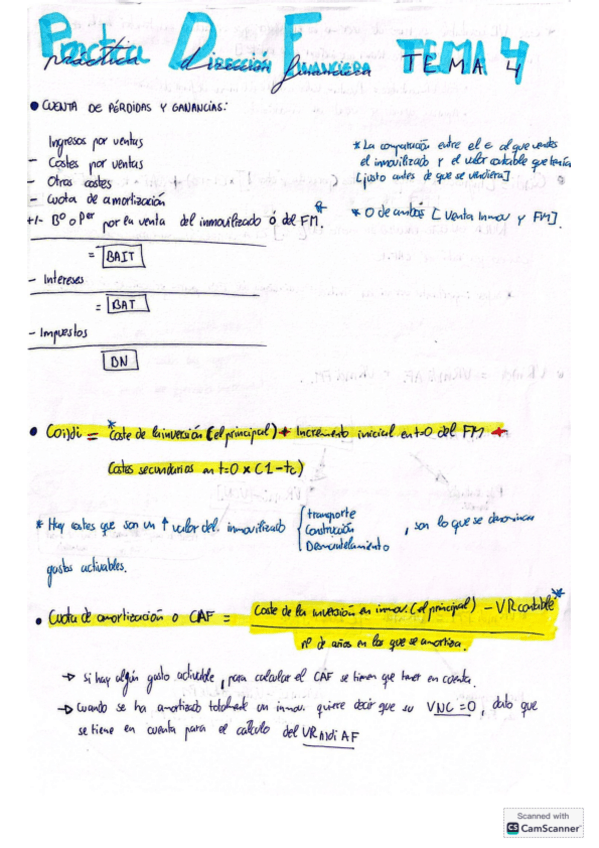 Práctica Dirección Financiera TEMA 4
• CUENTA DE PÉRDIDAS Y GANANCIAS:
Ingresos por ventas
- Costes por ventas
- Otros costes
- Cuota de amortización
+/- Bº o Per por la venta del inmovilizado ó del FM *
= BAIT
- Intereses
= BAT
- Impuestos
BN
* La comparación entre el € al que vendes
el inmovilizado y el valor contable que tenía
[justo antes de que se vendiera]
* O de ambos [Venta Inmov y FM].
• Coindi = * Coste de la inversión (el principal) + Incremento inicial en t=0 del FM +
Costes secundarios en t=0 x (1-tc)
* Hay costes que son un ↑ valor del inmovilizado { transporte
Construcción
Desmantelamiento
, son lo que se denominan
gastos activables.
• Cuota de amortización o CAF = Coste de la inversión en inmov. (el principal) - VR contable *
nº de años en los que se amortiza.
→ Si hay algún gasto activable, para calcular el CAF se tienen que tener en cuenta.
→ Cuando se ha amortizado totalmente un inmov. quiere decir que su VNC = 0, dato que
se tiene en cuenta para el cálculo del VRndi AF
Scanned with
CS CamScanner